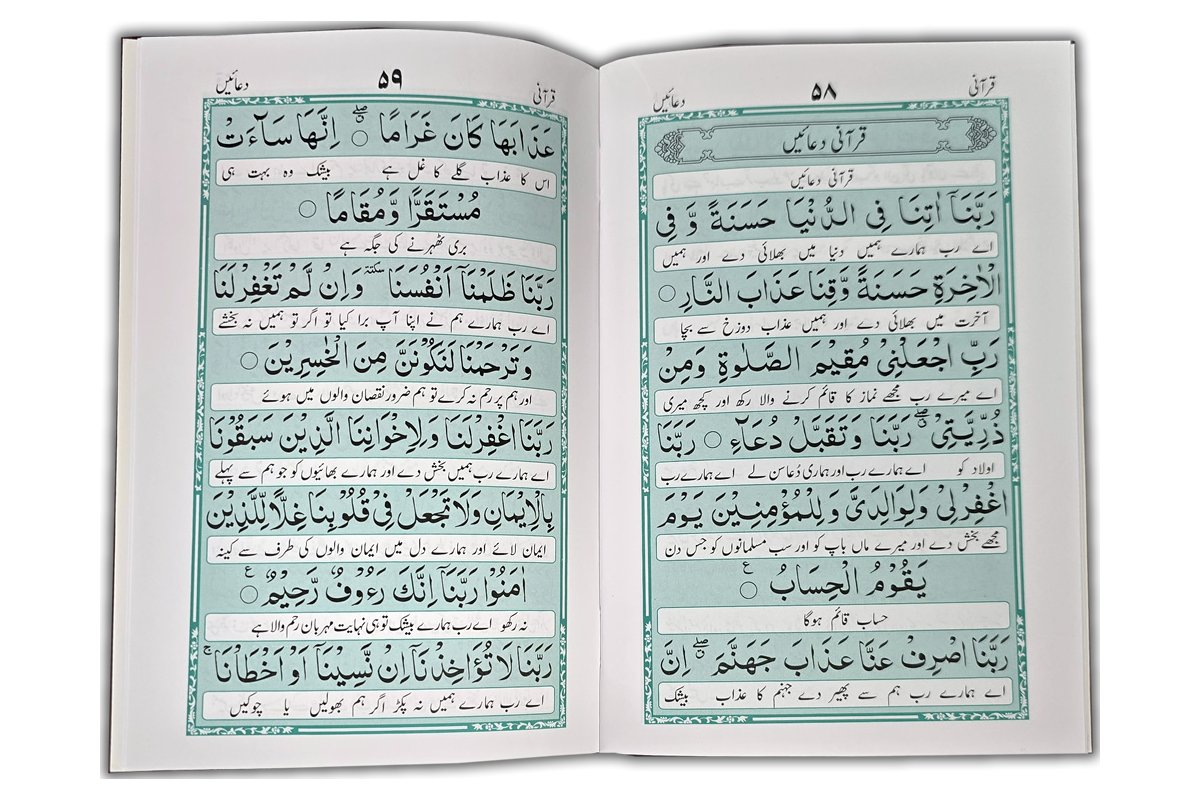 قرآنی ۵۸ دعائیں
قرآنی دعائیں
قرآنی دعائیں
رَبَّنَآ اٰتِنَا فِی الدُّنْیَا حَسَنَةً وَّ فِی
اے رب ہمارے ہمیں دنیا میں بھلائی دے اور ہمیں
الْاٰخِرَةِ حَسَنَةً وَّقِنَا عَذَابَ النَّارِ ○
آخرت میں بھلائی دے اور ہمیں عذاب دوزخ سے بچا
رَبِّ اجْعَلْنِیْ مُقِیْمَ الصَّلٰوةِ وَمِنْ
اے میرے رب مجھے نماز کا قائم کرنے والا رکھ اور کچھ میری
ذُرِّیَّتِیْ ۖ رَبَّنَا وَتَقَبَّلْ دُعَآءِ ○ رَبَّنَا
اولاد کو اے ہمارے رب اور ہماری دُعا سن لے اے ہمارے رب
اغْفِرْلِیْ وَلِوَالِدَیَّ وَلِلْمُؤْمِنِیْنَ یَوْمَ
مجھے بخش دے اور میرے ماں باپ کو اور سب مسلمانوں کو جس دن
یَقُوْمُ الْحِسَابُ ○ ع
حساب قائم ہوگا
رَبَّنَا اصْرِفْ عَنَّا عَذَابَ جَهَنَّمَ ۖ اِنَّ
اے ہمارے رب ہم سے پھیر دے جہنم کا عذاب بیشک
قرآنی ۵۹ دعائیں
عَذَابَهَا كَانَ غَرَامًا ○ ۖ اِنَّهَا سَآءَتْ
اس کا عذاب گلے کا غل ہے بیشک وہ بہت ہی
مُسْتَقَرًّا وَّمُقَامًا ○
بری ٹھہرنے کی جگہ ہے
رَبَّنَا ظَلَمْنَآ اَنْفُسَنَا سكتة وَاِنْ لَّمْ تَغْفِرْلَنَا
اے رب ہمارے ہم نے اپنا آپ برا کیا تو اگر تو ہمیں نہ بخشے
وَتَرْحَمْنَا لَنَكُوْنَنَّ مِنَ الْخٰسِرِیْنَ ○
اور ہم پر رحم نہ کرے تو ہم ضرور نقصان والوں میں ہوئے
رَبَّنَا اغْفِرْلَنَا وَلِاِخْوَانِنَا الَّذِیْنَ سَبَقُوْنَا
اے ہمارے رب ہمیں بخش دے اور ہمارے بھائیوں کو جو ہم سے پہلے
بِالْاِیْمَانِ وَلَا تَجْعَلْ فِیْ قُلُوْبِنَا غِلًّا لِّلَّذِیْنَ
ایمان لائے اور ہمارے دل میں ایمان والوں کی طرف سے کینہ
اٰمَنُوْا رَبَّنَآ اِنَّكَ رَءُوْفٌ رَّحِیْمٌ ○ ع
نہ رکھو اے رب ہمارے بیشک تو ہی نہایت مہربان رحم والا ہے
رَبَّنَا لَا تُؤَاخِذْنَآ اِنْ نَّسِیْنَآ اَوْ اَخْطَاْنَا ۚ
اے رب ہمارے ہمیں نہ پکڑ اگر ہم بھولیں یا چوکیں